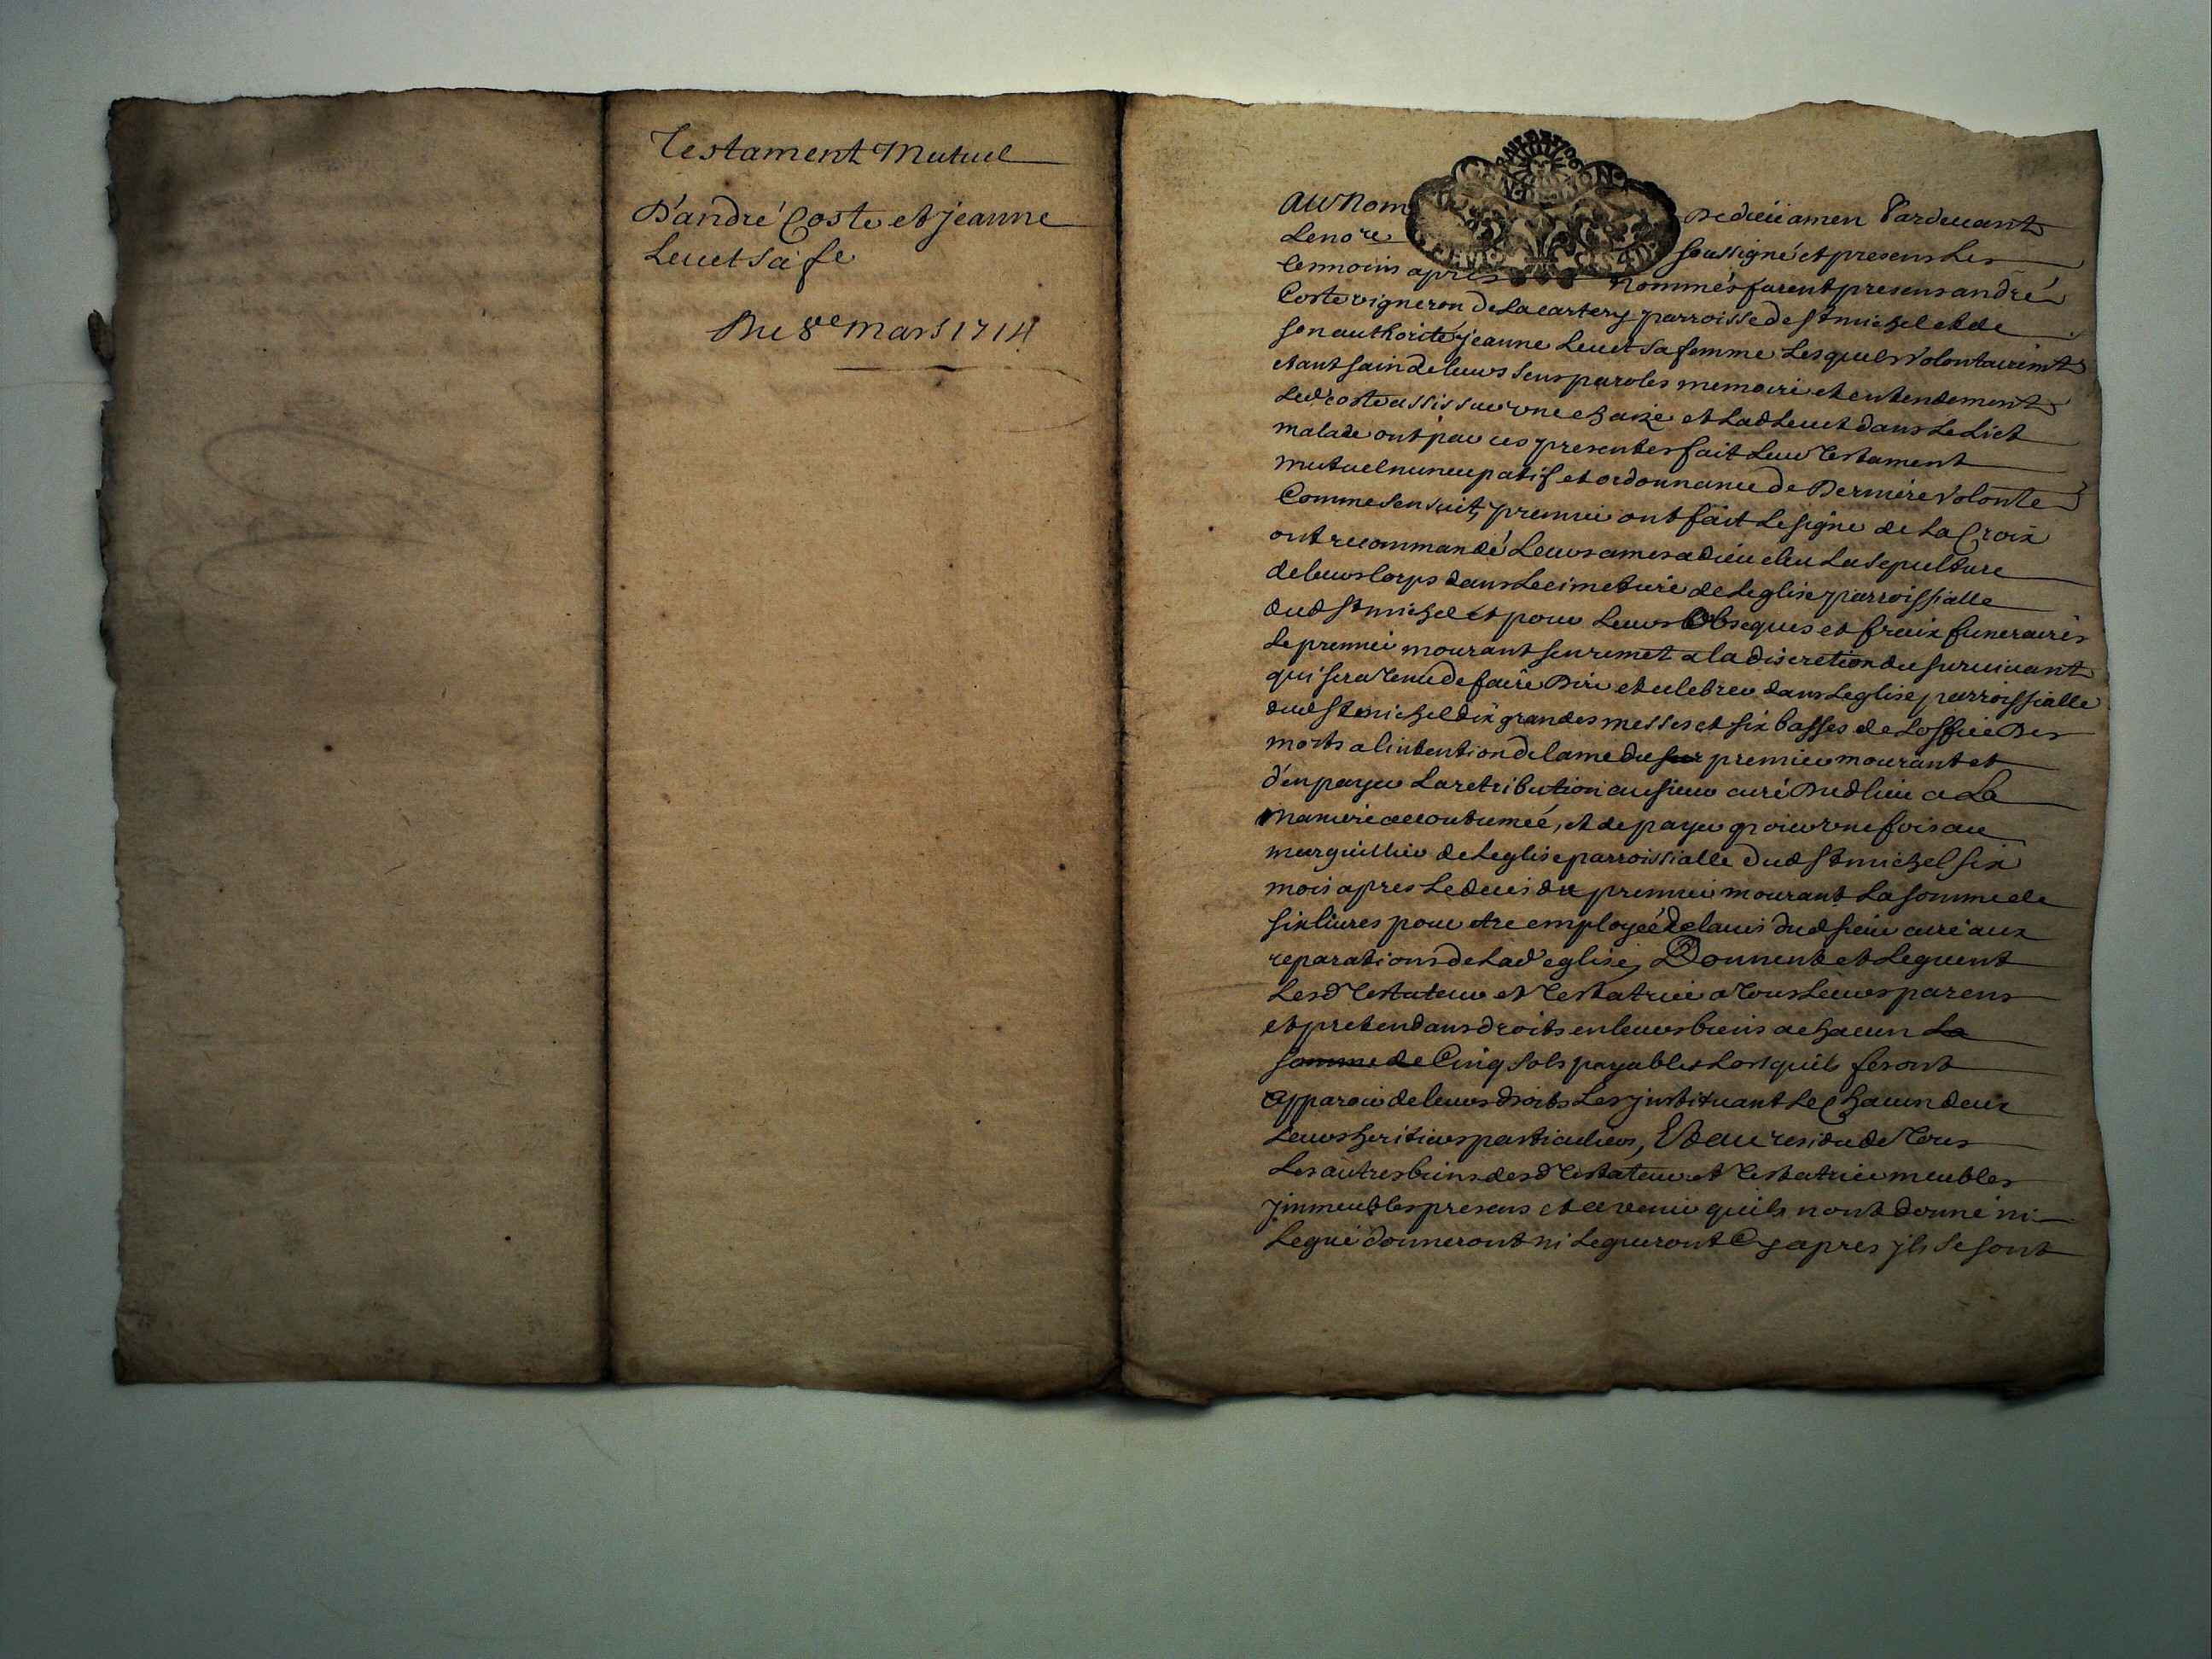 Testament Mutuel
D'andré Coste et jeanne
Leuet sa fe
Du 8e mars 1714
GENERATION
au Nom De dieu amen Pardeuant
Le nore soussigné et presens Les
temoins apres nommés furent presens andré
Coste vigneron de La cartery parroisse de St michel et de
son authorité jeanne Leuet sa femme Lesquels Volontairemt
etant sain de leurs sens paroles memoire et entendement
Led coste assis sur vne chaize et Lad Leuet dans Le Lict
malade ont par ces presentes fait Leur Testament
mutuel nuncupatif et ordonnance de Derniere Volonte
Comme sensuit, premier ont fait Le signe de La Croix
ont recommandé Leurs ames a dieu eleu La sepulture
de leurs Corps dans Le cimetiere de Leglise parroissialle
dud St michel et pour Leurs Obseques et fraix funeraires
Le premier mourant sen remet a la discretion du suruiuant
qui sera tenu de faire Dire et celebrer dans Leglise parroissialle
dud St michel dix grandes messes et six basses de Loffice Des
morts a lintention de lame du sur premier mourant et
d'en payer La retribution au sieur curé Dud lieu a La
maniere accoutumée, et de payer pour vne fois au
marguillier de Leglise parroissialle dud St michel six
mois apres Le deces du premier mourant La somme de
six liures pour etre employée de lauis dud sieur curé aux
reparations de Lad eglise, Donnent et Leguent
Lesd Testateur et Testatrice a tous Leurs parens
et pretendans droits en leurs biens a chacun La
somme de Cinq sols payables Lorsquils feront
apparoir de leurs droits Les jnstituant Le Chacun deux
Leurs heritiers particuliers, Et au residu de Tous
Les autres biens desd Testateur et Testatrice meubles
jmmeubles presens et a venir quils nont donné ni
Legué donneront ni Legueront Cy apres jls se sont